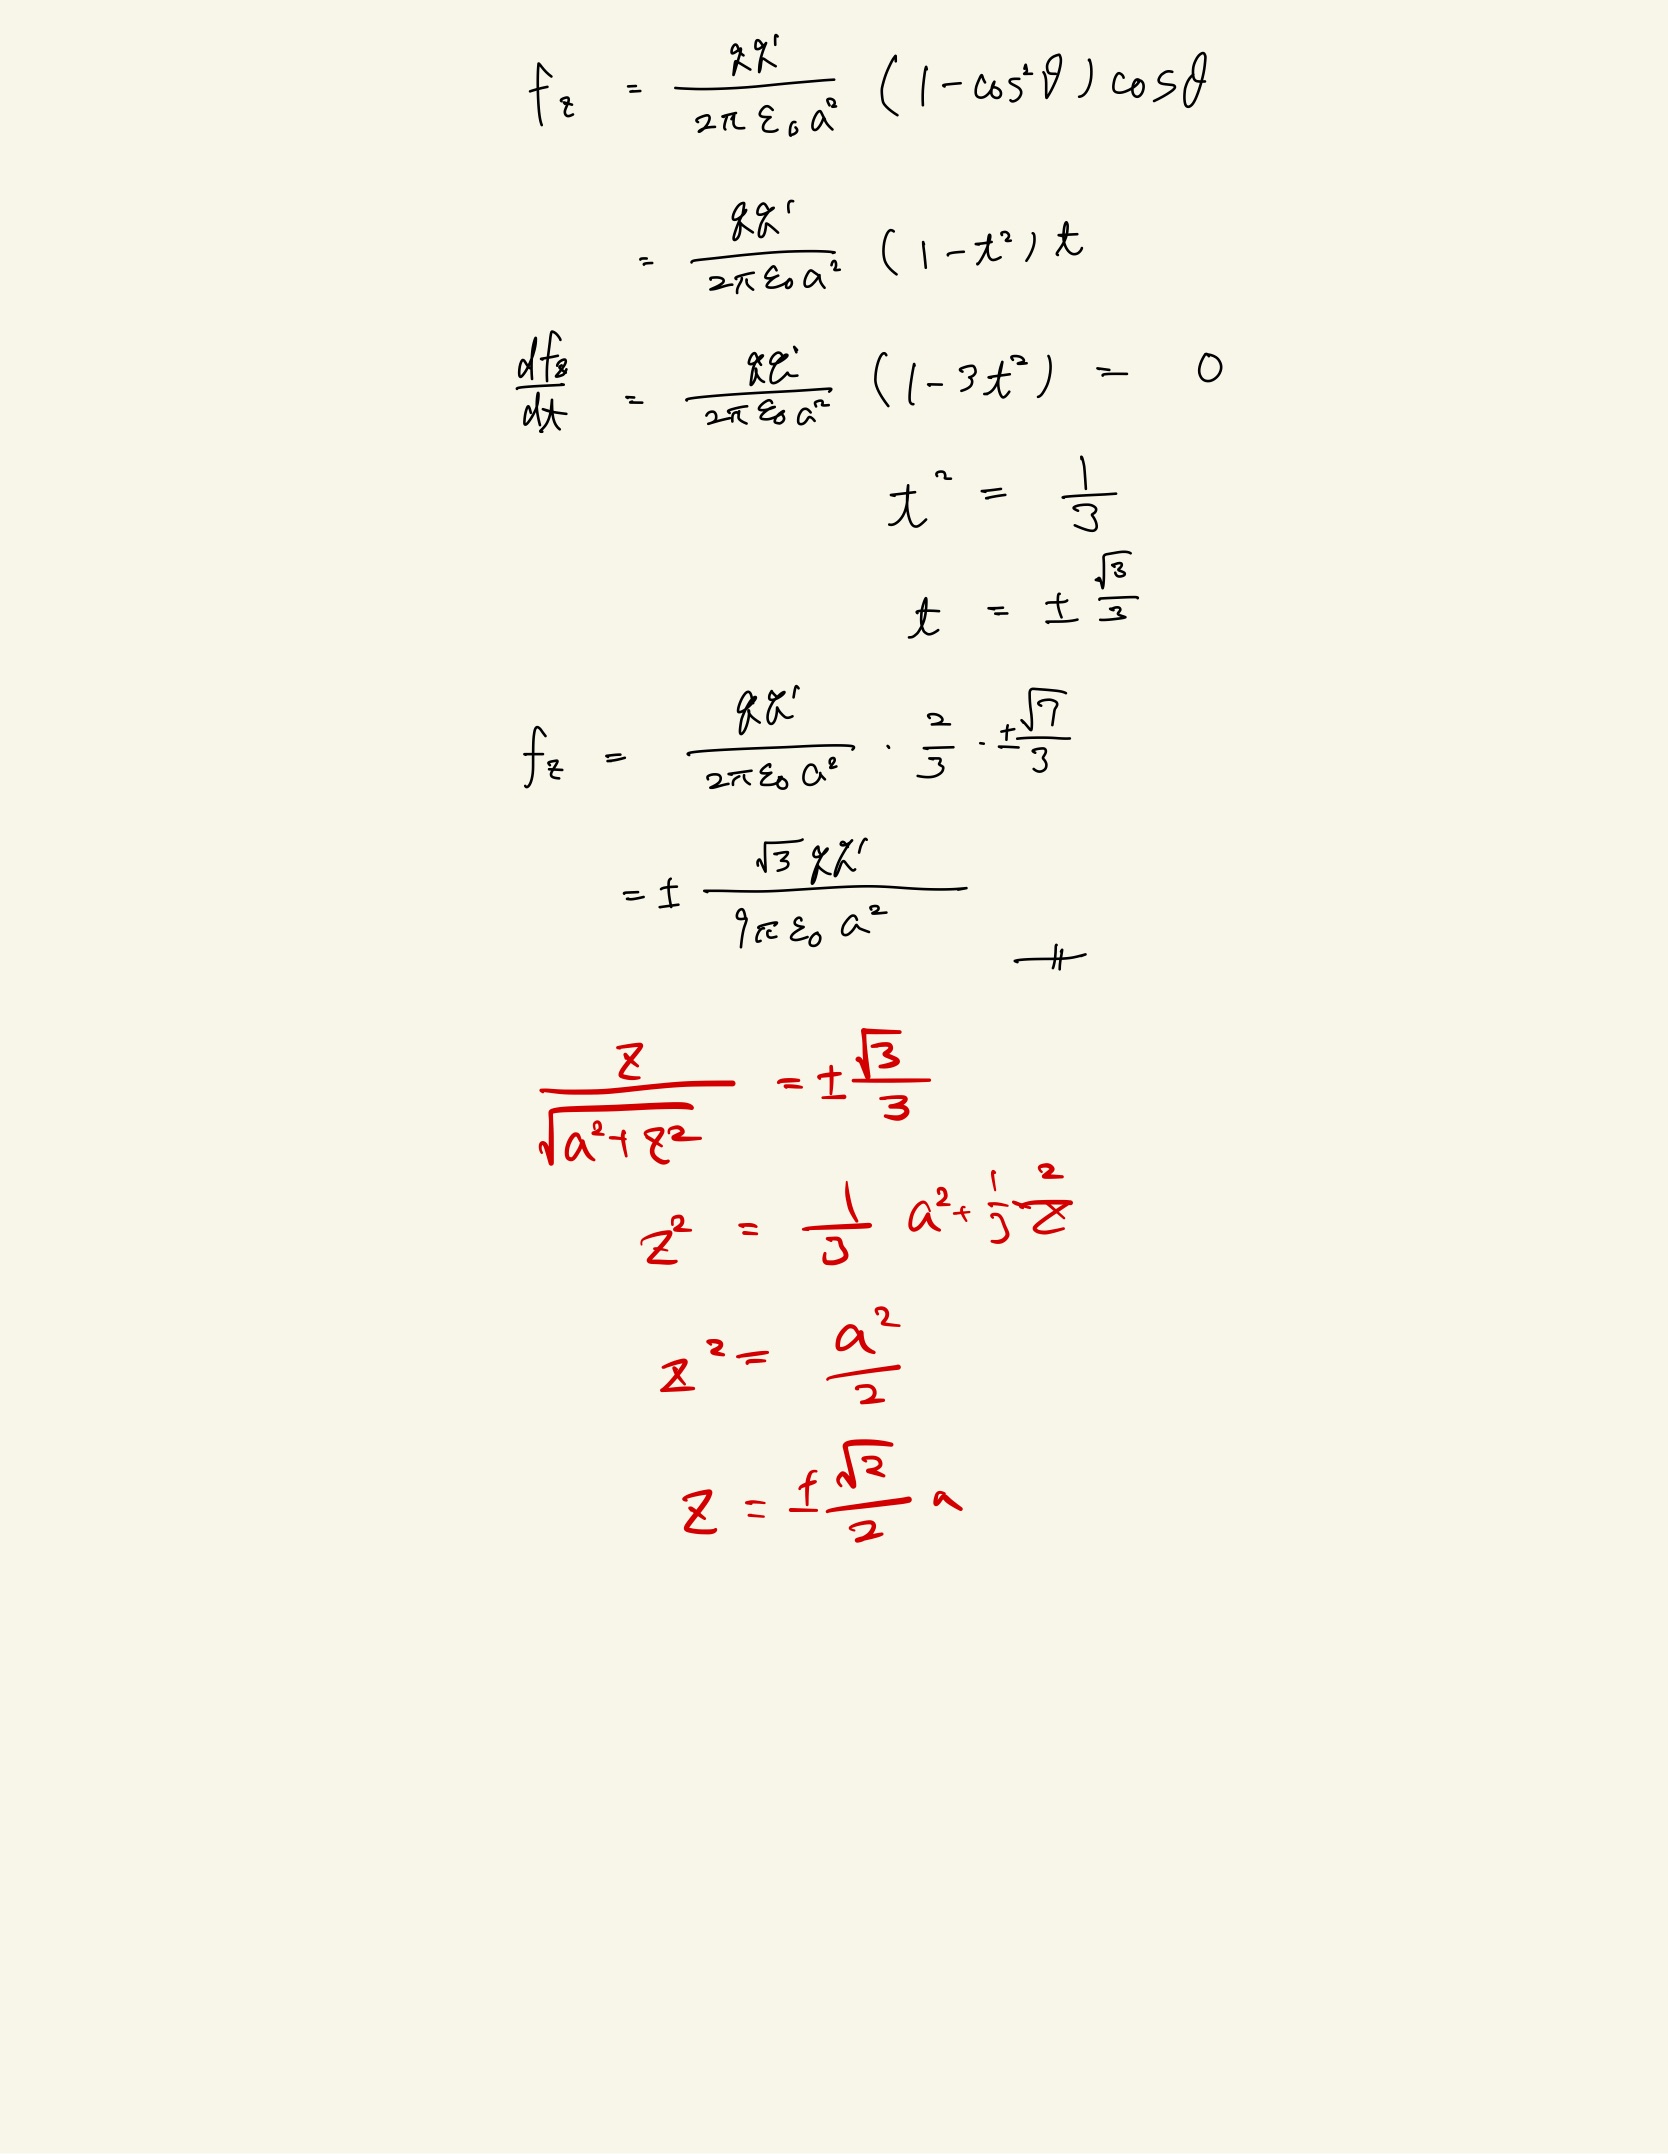 f_z = qq' / 2πε₀a² (1 - cos²θ) cosθ
= qq' / 2πε₀a² (1 - t²) t
df_z / dt = qq' / 2πε₀a² (1 - 3t²) = 0
t² = 1/3
t = ± √3/3
f_z = qq' / 2πε₀a² · 2/3 · ± √7/3
= ± √3 qq' / 9πε₀ a²
z / √(a² + z²) = ± √3/3
z² = 1/3 a² + 1/3 z²
z² = a²/2
z = ± √2/2 a